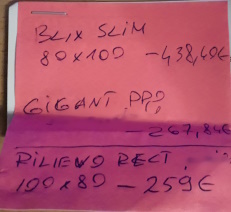 BLIX SLIM
80 x 100 - 438,40€
GIGANT PPD
- 267,84€
RILIEVO RECT.
100 x 80 - 259€